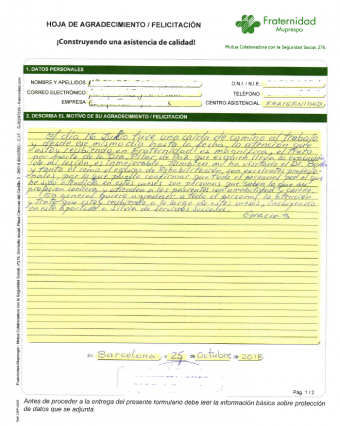 HOJA DE AGRADECIMIENTO / FELICITACIÓN
¡Construyendo una asistencia de calidad!
Fraternidad
Muprespa
Mutua Colaboradora con la Seguridad Social, 275
1. DATOS PERSONALES
NOMBRE Y APELLIDOS
D.N.I. / N.I.E.
CORREO ELECTRÓNICO
TELÉFONO
EMPRESA
CENTRO ASISTENCIAL FRATERNIDAD
2. DESCRIBA EL MOTIVO DE SU AGRADECIMIENTO / FELICITACIÓN
El día 16 Junio tuve una caída de camino al trabajo
y desde ese mismo día hasta la fecha, la atención que
estoy recibiendo en Fraternidad es magnífica, el trato
por parte de la Dra. Pilar de Paz que es quien lleva la evolución
de mi lesión, es inmejorable, También me ha visitado el Dr.
y tanto él como el equipo de Rehabilitación, son excelentes profesio-
nales, por lo que puedo confirmar que todo el personal por el que
he sido atendido en estos meses son personas que saben lo que su
profesión conlleva y atienden a los pacientes con amabilidad y cariño.
En general quiero agradecer a todo el personal la atención
y trato que estoy recibiendo a lo largo de estos meses, incluyendo
en este apartado a
Gracias
En Barcelona, a 25 de Octubre de 2018
Pág. 1 / 2
Antes de proceder a la entrega del presente formulario debe leer la información básica sobre protección
de datos que se adjunta.